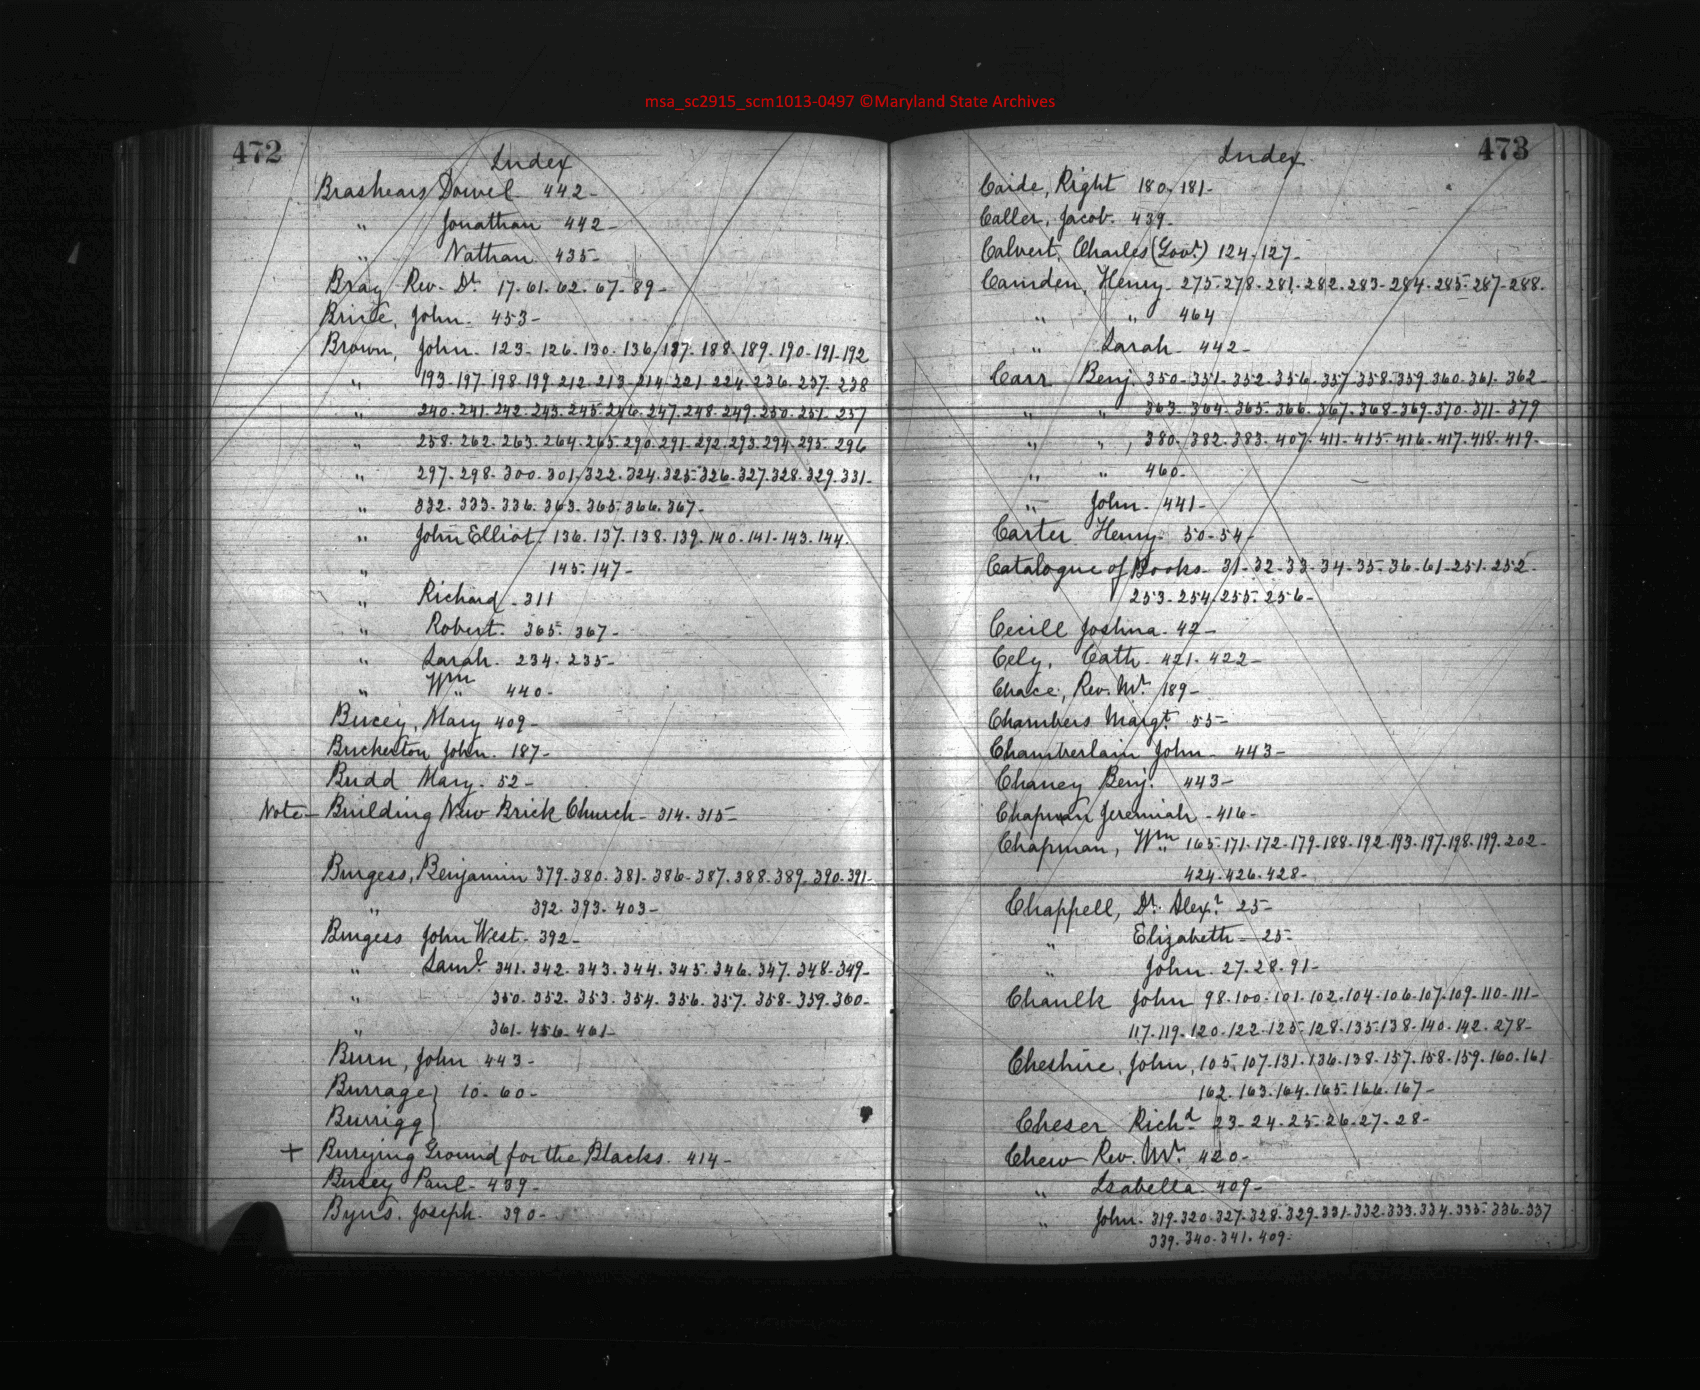 msa_sc2915_scm1013-0497 ©Maryland State Archives
472
Index
Brashears Dowel 442-
" Jonathan 442-
" Nathan 435-
Bray Rev. Dr. 17-61-62-67-89-
Brice, John. 453-
Brown, John. 123-126-130-136-187-188-189-190-191-192
" 193-197-198-199-212-213-214-221-224-236-237-238
" 240-241-242-243-245-246-247-248-249-250-251-257
" 258-262-263-264-265-290-291-292-293-294-295-296
" 297-298-300-301-322-324-325-326-327-328-329-331-
" 332-333-336-363-365-366-367-
" John Elliot 136-137-138-139-140-141-143-144-
" 145-147-
" Richard -311
" Robert. 365-367-
" Sarah. 234-235-
" Wm 440-
Bucey, Mary 409-
Buckerton John. 187-
Budd Mary. 52-
Note- Building New Brick Church- 314-315-
Burgess, Benjamin 379-380-381-386-387-388-389-390-391-
" 392-393-403-
Burgess John West- 392-
" Saml. 341-342-343-344-345-346-347-348-349-
" 350-352-353-354-356-357-358-359-360-
" 361-456-461-
Burn, John 443-
Burrage } 10-60-
Burrigg }
+ Burying Ground for the Blacks. 414-
Busey Paul- 439-
Byns. Joseph. 390-
473
Index
Caide, Right 180-181-
Caller, Jacob. 439-
Calvert, Charles (Govr.) 124-127-
Camden, Henry- 275-278-281-282-283-284-285-287-288-
" " 464
" Sarah- 442-
Carr Benj 350-351-352-356-357-358-359-360-361-362-
" " 363-364-365-366-367-368-369-370-371-379
" " 380-382-383-407-411-415-416-417-418-419-
" " 460-
" John- 441-
Carter Henry- 50-54-
Catalogue of Books- 31-32-33-34-35-36-61-251-252-
253-254-255-256-
Cecill Joshua- 42-
Cely, Cath- 421-422-
Chace, Rev. Mr. 189-
Chambers Margt. 55-
Chamberlain John- 443-
Chaney Benj. 443-
Chapman Jeremiah -416-
Chapman, Wm 165-171-172-179-188-192-193-197-198-199-202-
424-426-428-
Chappell, Dr. Alexr. 25-
" Elizabeth- 25-
" John. 27-28-91-
Chaulk John 98-100-101-102-104-106-107-109-110-111-
117-119-120-122-125-128-135-138-140-142-278-
Cheshire, John, 105-107-131-136-138-157-158-159-160-161
162-163-164-165-166-167-
Cheser Richd. 23-24-25-26-27-28-
Chew Rev. Mr. 420-
" Isabella. 409-
" John- 319-320-327-328-329-331-332-333-334-335-336-337
339-340-341-409-